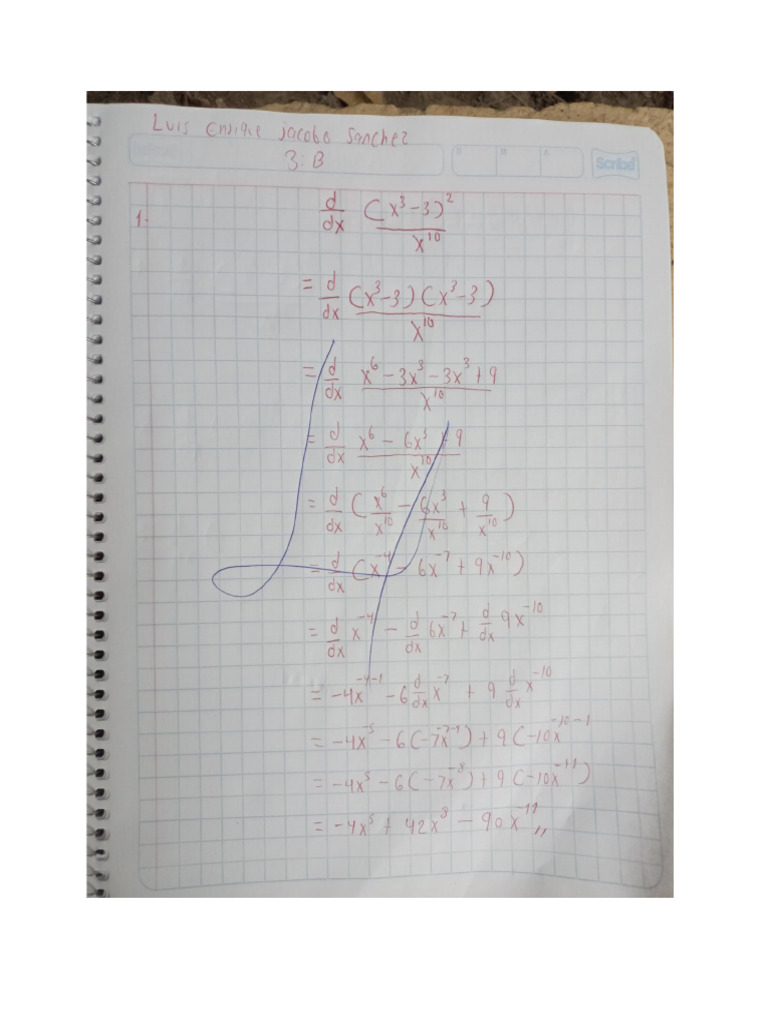 Luis Enrique Jacobo Sanchez
3:B
Scribe
1- d/dx (x³-3)²/x¹⁰
= d/dx (x³-3)(x³-3)/x¹⁰
= d/dx x⁶-3x³-3x³+9/x¹⁰
= d/dx x⁶-6x³+9/x¹⁰
= d/dx (x⁶/x¹⁰ - 6x³/x¹⁰ + 9/x¹⁰)
= d/dx (x⁻⁴ - 6x⁻⁷ + 9x⁻¹⁰)
= d/dx x⁻⁴ - d/dx 6x⁻⁷ + d/dx 9x⁻¹⁰
= -4x⁻⁴⁻¹ - 6 d/dx x⁻⁷ + 9 d/dx x⁻¹⁰
= -4x⁻⁵ - 6(-7x⁻⁷⁻¹) + 9(-10x⁻¹⁰⁻¹
= -4x⁵ - 6(-7x⁻⁸) + 9(-10x⁻¹¹)
= -4x⁵ + 42x⁸ - 90x⁻¹¹,,